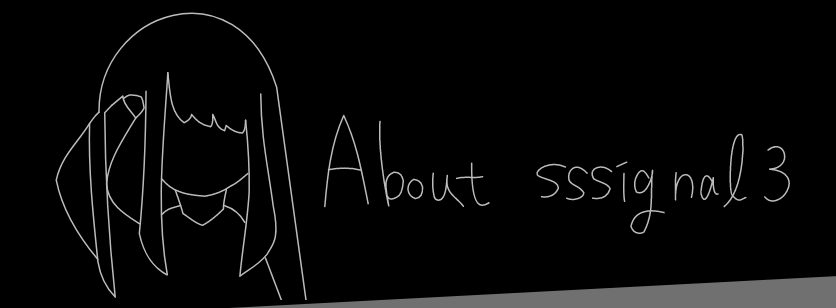 About sssignal3